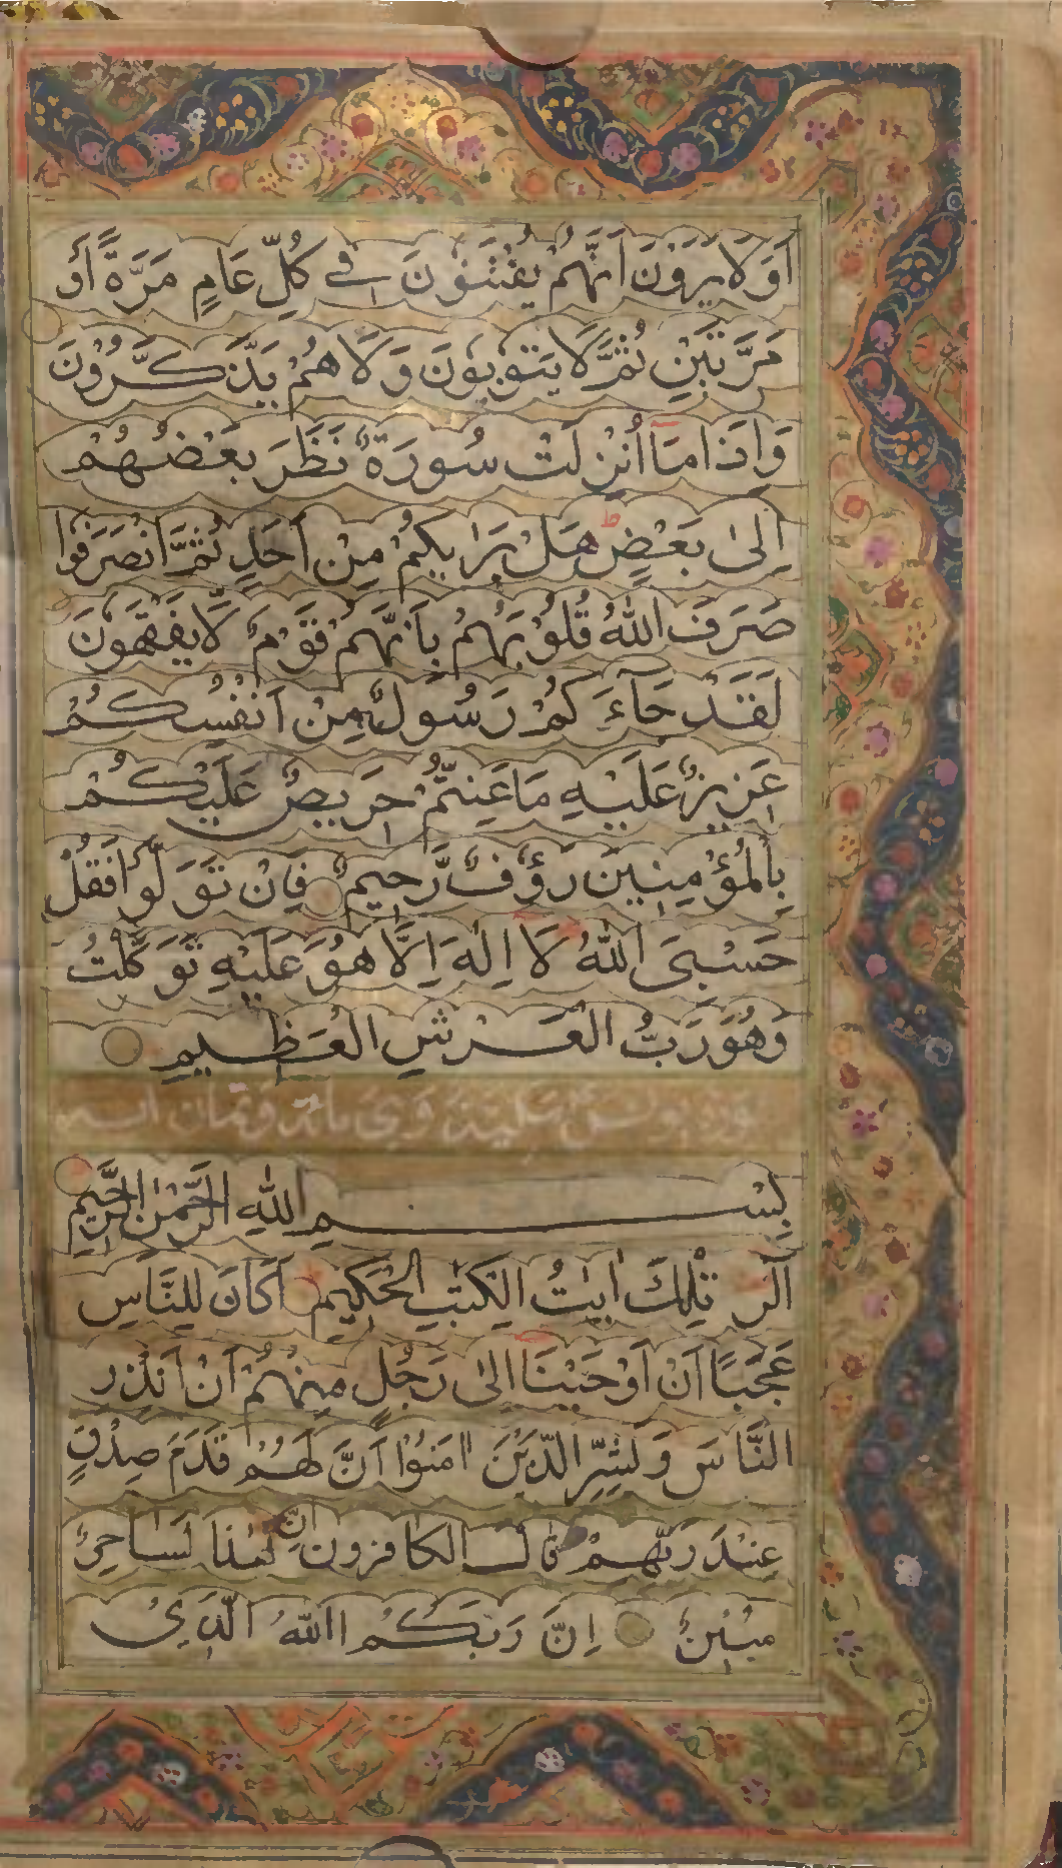 اَوَلَا يَرَوْنَ اَنَّهُمْ يُفْتَنُوْنَ فِے كُلِّ عَامٍ مَرَّةً اَوْ
مَرَّتَيْنِ ثُمَّ لَا يَتُوْبُوْنَ وَلَا هُمْ يَذَّكَّرُوْنَ
وَاِذَا مَا اُنْزِلَتْ سُورَةٌ نَظَرَ بَعْضُهُمْ
اِلٰى بَعْضٍ ط هَلْ يَرٰيكُمْ مِنْ اَحَدٍ ثُمَّ انْصَرَفُوا
صَرَفَ اللّٰهُ قُلُوْبَهُمْ بِاَنَّهُمْ قَوْمٌ لَّا يَفْقَهُونَ
لَقَدْ جَآءَكُمْ رَسُولٌ مِنْ اَنْفُسِكُمْ
عَزِيزٌ عَلَيْهِ مَا عَنِتُّمْ حَرِيصٌ عَلَيْكُمْ
بِالْمُؤْمِنِينَ رَؤُفٌ رَّحِيمٌ فَاِنْ تَوَلَّوْا فَقُلْ
حَسْبِىَ اللّٰهُ لَا اِلٰهَ اِلَّا هُوَ عَلَيْهِ تَوَكَّلْتُ
وَهُوَ رَبُّ الْعَرْشِ الْعَظِيمِ
سورة يونس مكية وهى مائة وثمان اية
بِسْمِ اللّٰهِ الرَّحْمٰنِ الرَّحِيمِ
الٓرٰ تِلْكَ اٰيٰتُ الْكِتٰبِ الْحَكِيمِ اَكَانَ لِلنَّاسِ
عَجَبًا اَنْ اَوْحَيْنَا اِلٰى رَجُلٍ مِنْهُمْ اَنْ اَنْذِرِ
النَّاسَ وَبَشِّرِ الَّذِيْنَ اٰمَنُوْا اَنَّ لَهُمْ قَدَمَ صِدْقٍ
عِنْدَ رَبِّهِمْ قَالَ الْكَافِرُونَ اِنَّ هٰذَا لَسَاحِرٌ
مُبِيْنٌ اِنَّ رَبَّكُمُ اللّٰهُ الَّذِىْ